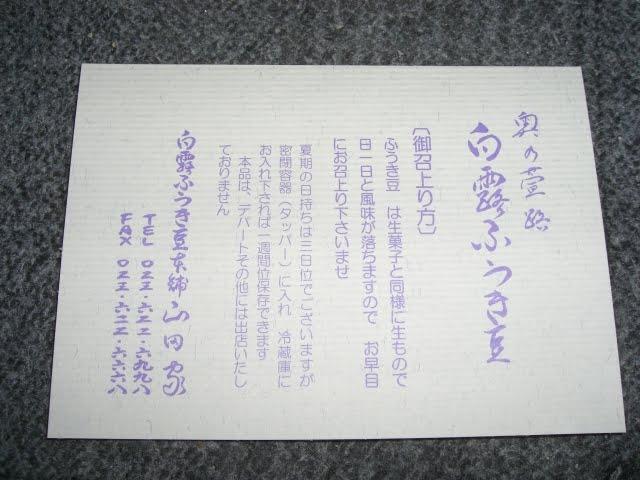 奥の萱路
白露ふうき豆
〔御召上り方〕
ふうき豆　は生菓子と同様に生もので
日一日と風味が落ちますので　お早目
にお召上り下さいませ
夏期の日持ちは三日位でございますが
密閉容器（タッパー）に入れ　冷蔵庫に
お入れ下されば一週間位保存できます
本品は、デパートその他には出店いたし
ておりません
白露ふうき豆本舗 山田家
TEL 〇二三・六二二・六九九八
FAX 〇二三・六二二・六六六八